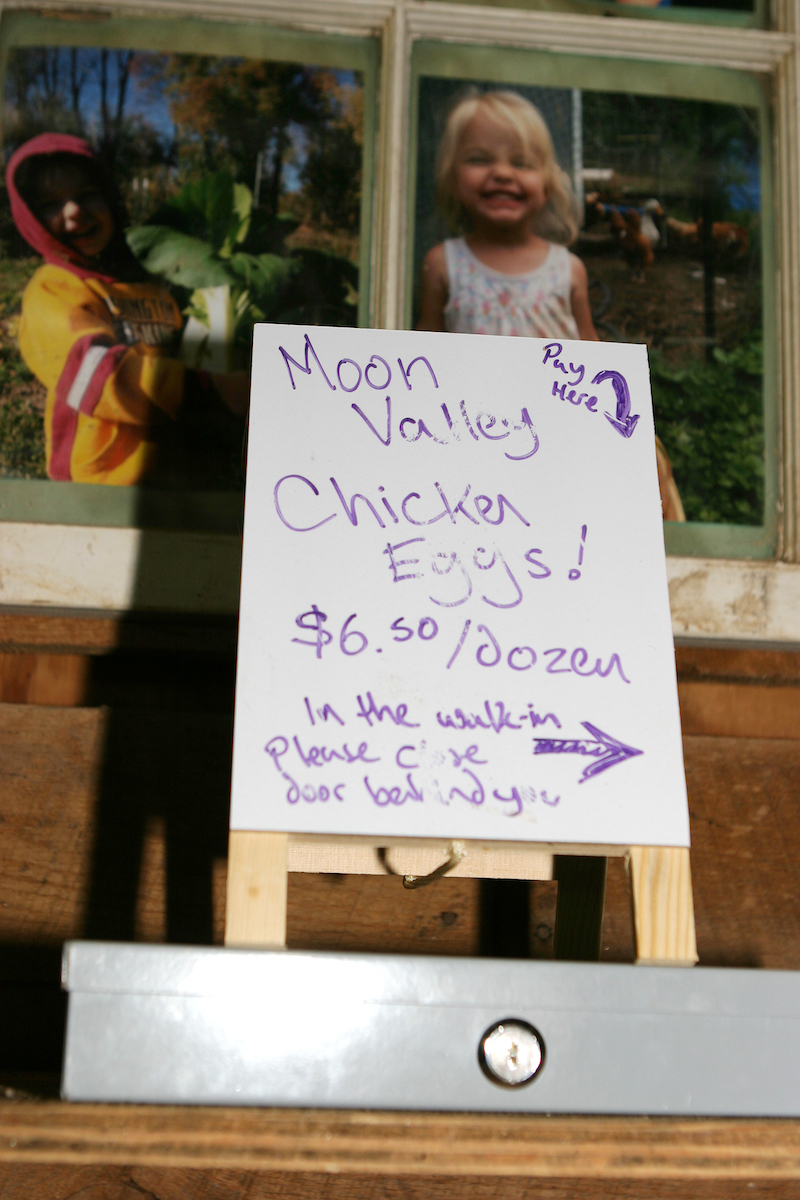 Moon
Valley
Pay
Here
Chicken
Eggs!
$6.50/dozen
In the walk-in
Please close
door behind you